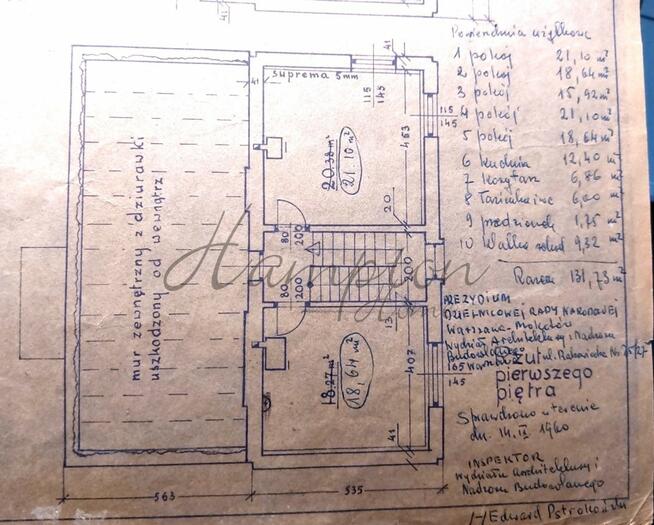 Powierzchnia użytkowa
1 pokój 21,10 m²
2 pokój 18,64 m²
3 pokój 15,92 m²
4 pokój 21,10 m²
5 pokój 18,64 m²
6 kuchnia 12,40 m²
7 korytarz 6,86 m²
8 Łazienka i wc 6,00 m²
9 przedpokój 1,75 m²
10 Klatka schod 9,32 m²
Razem 131,73 m²
PREZYDIUM
DZIELNICOWEJ RADY NARODOWEJ
Warszawa-Mokotów
Wydział Architektury i Nadzoru
Budowlanego
Warszawa ul. Rakowiecka Nr 25/27
rzut
pierwszego
piętra
Sprawdzono w terenie
dn. 14.II 1960
INSPEKTOR
Wydziału Architektury i
Nadzoru Budowlanego
/-/Edward
41
suprema 5mm
41
41
115
145
115
145
20.38 m²
21.10 m²
453
20
mur zewnętrzny z dziurawki
uszkodzony od wewnątrz
80
200
200
80
200
13
18.27 m²
18,64 m²
407
165
145
41
563
535
Hampton